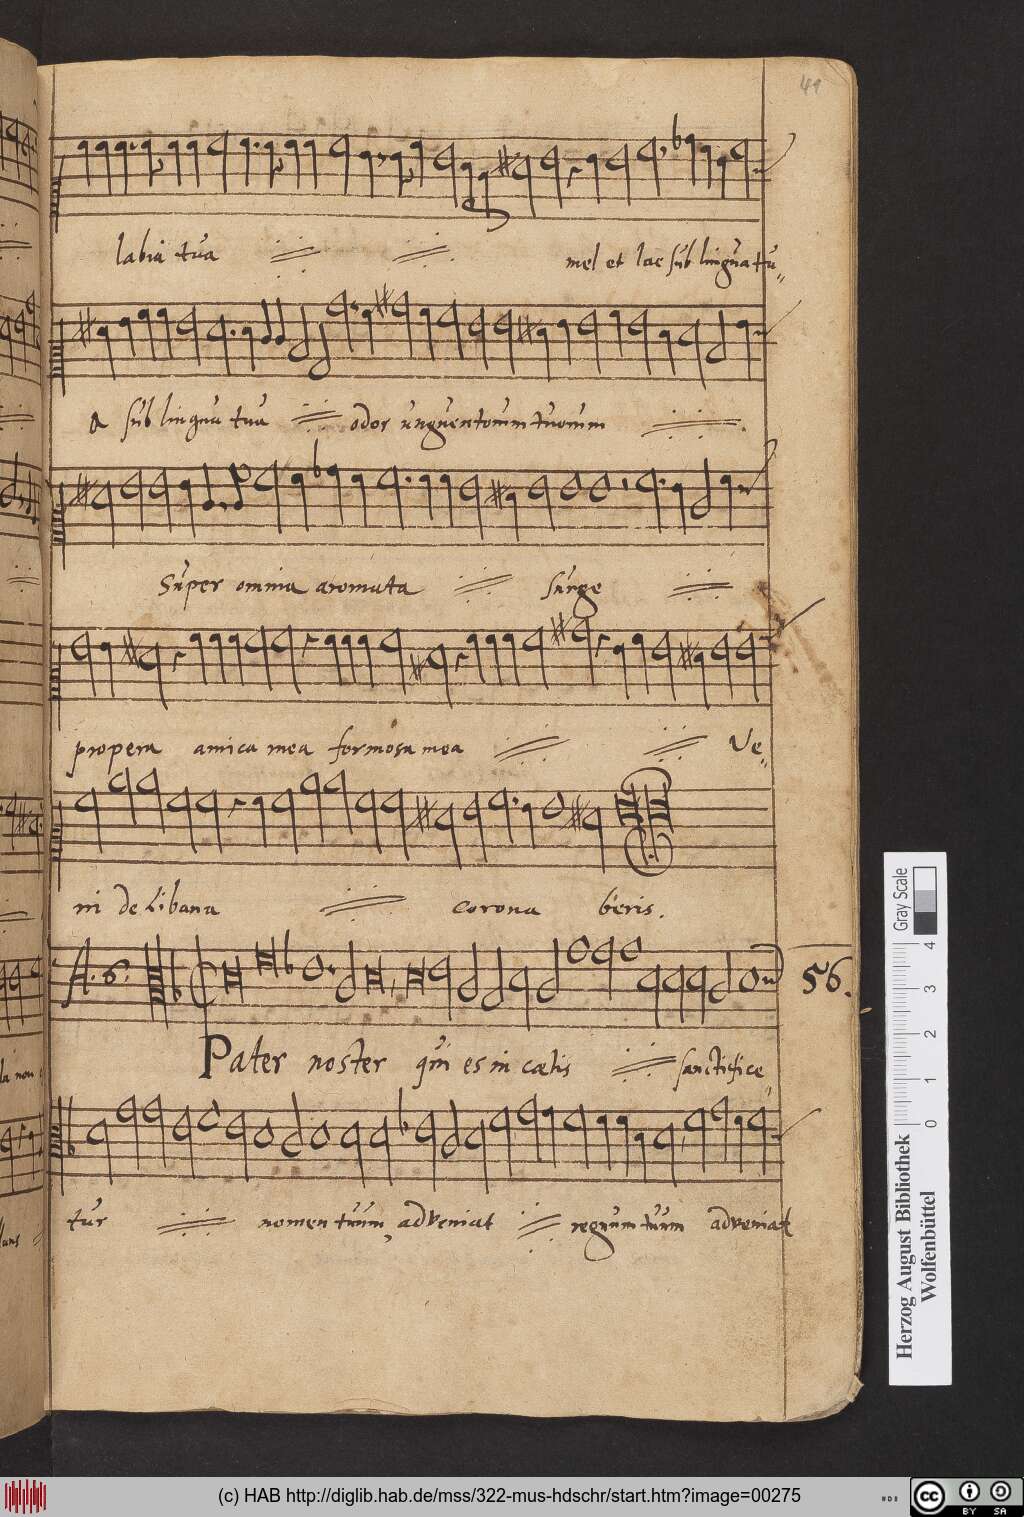 49
labia tua
mel et lac sub lingua tu
a sub lingua tua odor unguentorum tuorum
Super omnia aromata surge
propera amica mea formosa mea Ve
ni de Libana corona beris.
A. 6. 56.
Pater noster qui es in cœlis sanctifice
tur nomen tuum, adveniat regnum tuum adveniat
Gray Scale
0 1 2 3 4
Herzog August Bibliothek
Wolfenbüttel
(c) HAB http://diglib.hab.de/mss/322-mus-hdschr/start.htm?image=00275
cc BY SA